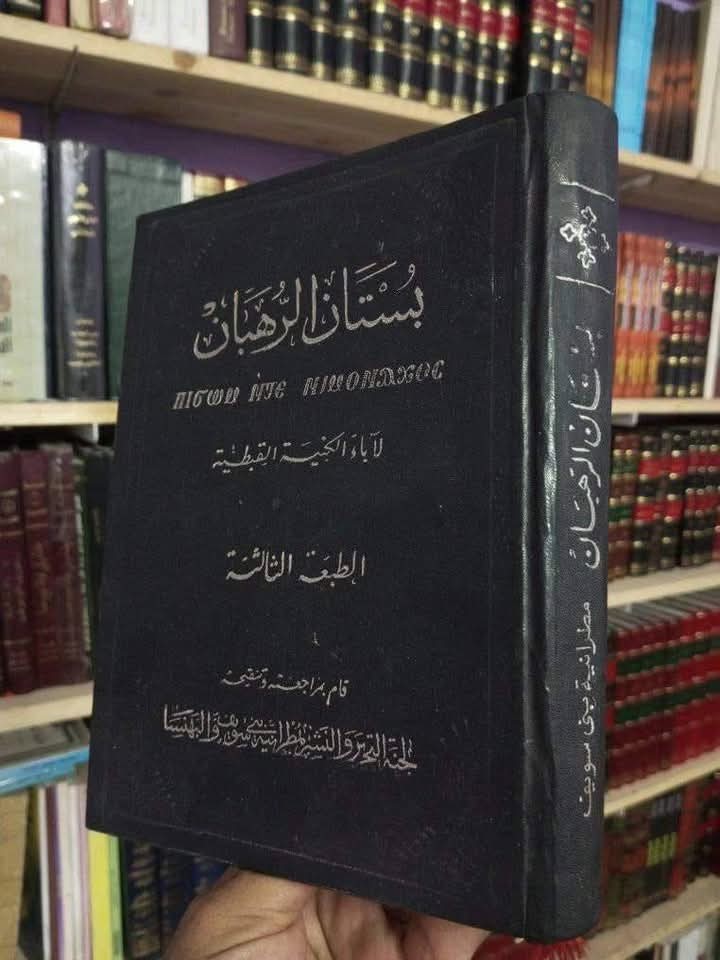 بُسْتَانُ الرُّهبَانْ
ⲡⲓϭⲱⲙ ⲛ̀ⲧⲉ ⲛⲓⲙⲟⲛⲁⲭⲟⲥ
لآباء الكنيسة القبطية
الطبعة الثالثة
قام بمراجعته وتنقيحه
لجنة التحرير والنشر بمطرانية بني سويف والبهنسا
بستان الرهبان
مطرانية بنى سويف